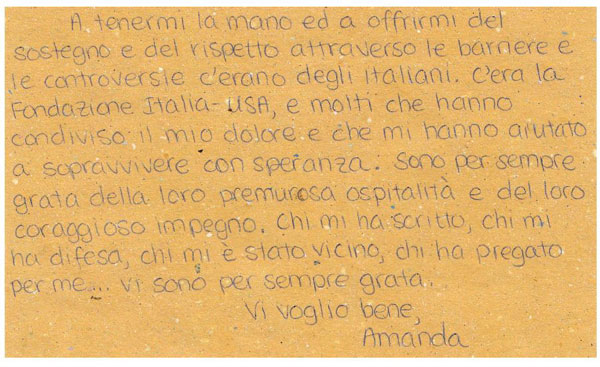 A tenermi la mano ed a offrirmi del
sostegno e del rispetto attraverso le barriere e
le controversie c'erano degli italiani. C'era la
Fondazione Italia-USA, e molti che hanno
condiviso il mio dolore e che mi hanno aiutato
a sopravvivere con speranza. Sono per sempre
grata della loro premurosa ospitalità e del loro
coraggioso impegno. Chi mi ha scritto, chi mi
ha difesa, chi mi è stato vicino, chi ha pregato
per me... vi sono per sempre grata.
Vi voglio bene,
Amanda